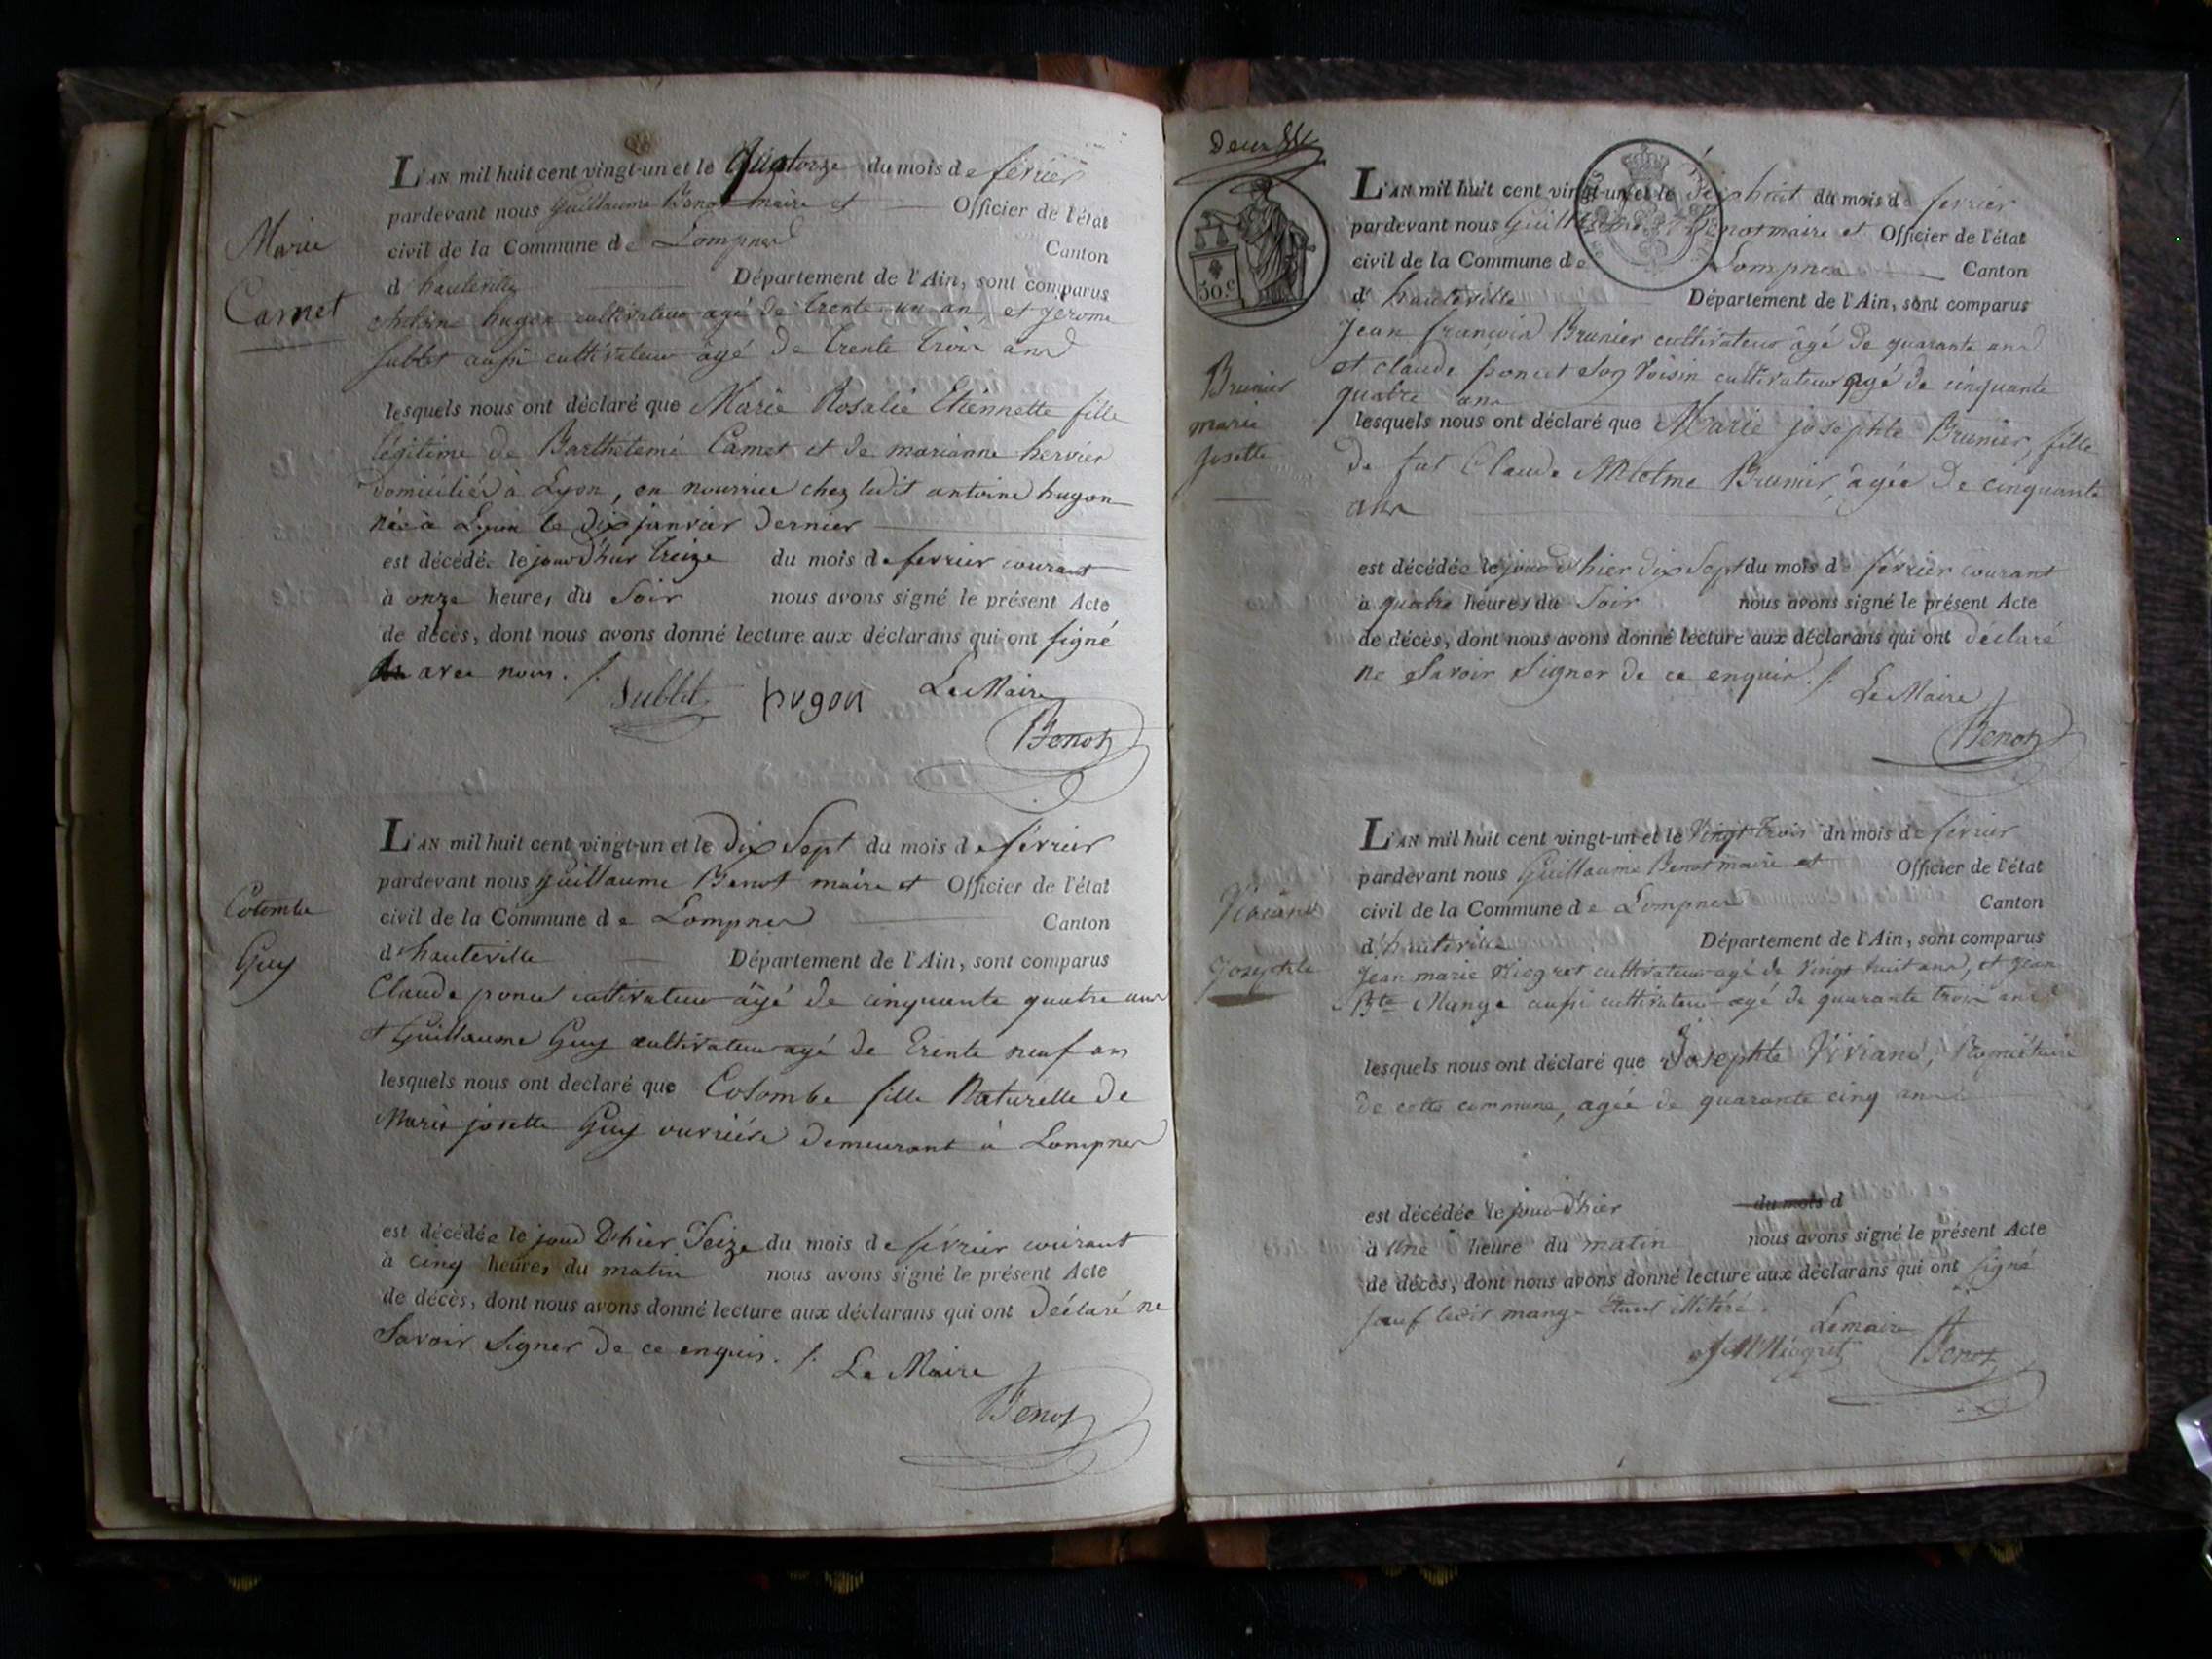 L'AN mil huit cent vingt-un et le Quatorze du mois de février
pardevant nous Guillaume Benot maire et Officier de l'état
civil de la Commune de Lompnes Canton
d'hauteville Département de l'Ain, sont comparus
Antoine hugon cultivateur agé de trente un an, et Jerome
Sublet aussi cultivateur âgé de trente trois ans
Marie
Carnet
lesquels nous ont déclaré que Marie Rosalie Etiennette fille
légitime de Barthelemi Carnet et de marianne hervier
domiciliés à Lyon, en nourrice chez ledit antoine hugon
née à Lyon le dix janvier dernier
est décédée le jour d'hier treize du mois de fevrier courant
à onze heures du Soir nous avons signé le présent Acte
de décès, dont nous avons donné lecture aux déclarans qui ont signé
avec nous ./.
Sublet hugon Le Maire
Benot
L'AN mil huit cent vingt-un et le dix Sept du mois de février
pardevant nous guillaume Benot maire et Officier de l'état
civil de la Commune de Lompnes Canton
d'hauteville Département de l'Ain, sont comparus
Colombe
Guy
Claude poncet cultivateur âgé de cinquante quatre ans
et Guillaume Guy cultivateur agé de trente neuf ans
lesquels nous ont declaré que Colombe fille Naturelle de
Marie josette Guy ouvrière demeurant à Lompnes
est décédée le jour D'hier Seize du mois de février courant
à cinq heures du matin nous avons signé le présent Acte
de décès, dont nous avons donné lecture aux déclarans qui ont déclaré ne
Savoir Signer de ce enquis ./. Le Maire
Benot
Deux
50.c
L'AN mil huit cent vingt-un et le dix huit du mois de fevrier
pardevant nous Guillaume Benot maire et Officier de l'état
civil de la Commune de Lompnes Canton
d'hauteville Département de l'Ain, sont comparus
Jean françois Brunier cultivateur âgé de quarante ans
et claude poncet son voisin cultivateur agé de cinquante
quatre ans
Brunier
marie
Josette
lesquels nous ont déclaré que Marie josephte Brunier, fille
de fut Claude Anthelme Brunier, âgée de cinquante
ans
est décédée le jour d'hier dix Sept du mois de février courant
à quatre heures du Soir nous avons signé le présent Acte
de décès, dont nous avons donné lecture aux déclarans qui ont déclaré
ne Savoir Signer de ce enquis ./. Le Maire
Benot
L'AN mil huit cent vingt-un et le Vingt trois du mois de février
pardevant nous Guillaume Benot maire et Officier de l'état
civil de la Commune de Lompnes Canton
d'hauteville Département de l'Ain, sont comparus
Jean marie Niogret cultivateur agé de vingt huit ans, et Jean
Bte Mange aussi cultivateur agé de quarante trois ans
Viviand
Josephte
lesquels nous ont déclaré que Josephte Viviand, Propriétaire
de cette commune, agée de quarante cinq ans
est décédée le jour d'hier du mois d
à Une heure du matin nous avons signé le présent Acte
de décès, dont nous avons donné lecture aux déclarans qui ont signé
Sauf ledit mange étant illitéré.
Le maire
JM Niogret Benot